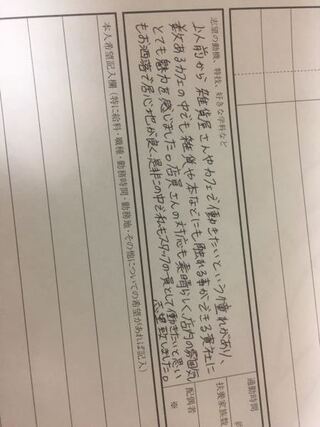 志望の動機、特技、好きな学科など
以前から雑貨屋さんやカフェで働きたいという憧れがあり、
数あるカフェの中でも雑貨や本などにも触れる事ができる貴社に
とても魅力を感じました。店員さんの対応も素晴らしく、店内の雰囲気
もお洒落で居心地が良く、是非この中で私もスタッフの一員として働きたいと思い
志望致しました。
通勤時間
約
扶養家族数
配偶者
※
本人希望記入欄（特に給料・職種・勤務時間・勤務地・その他についての希望があれば記入）